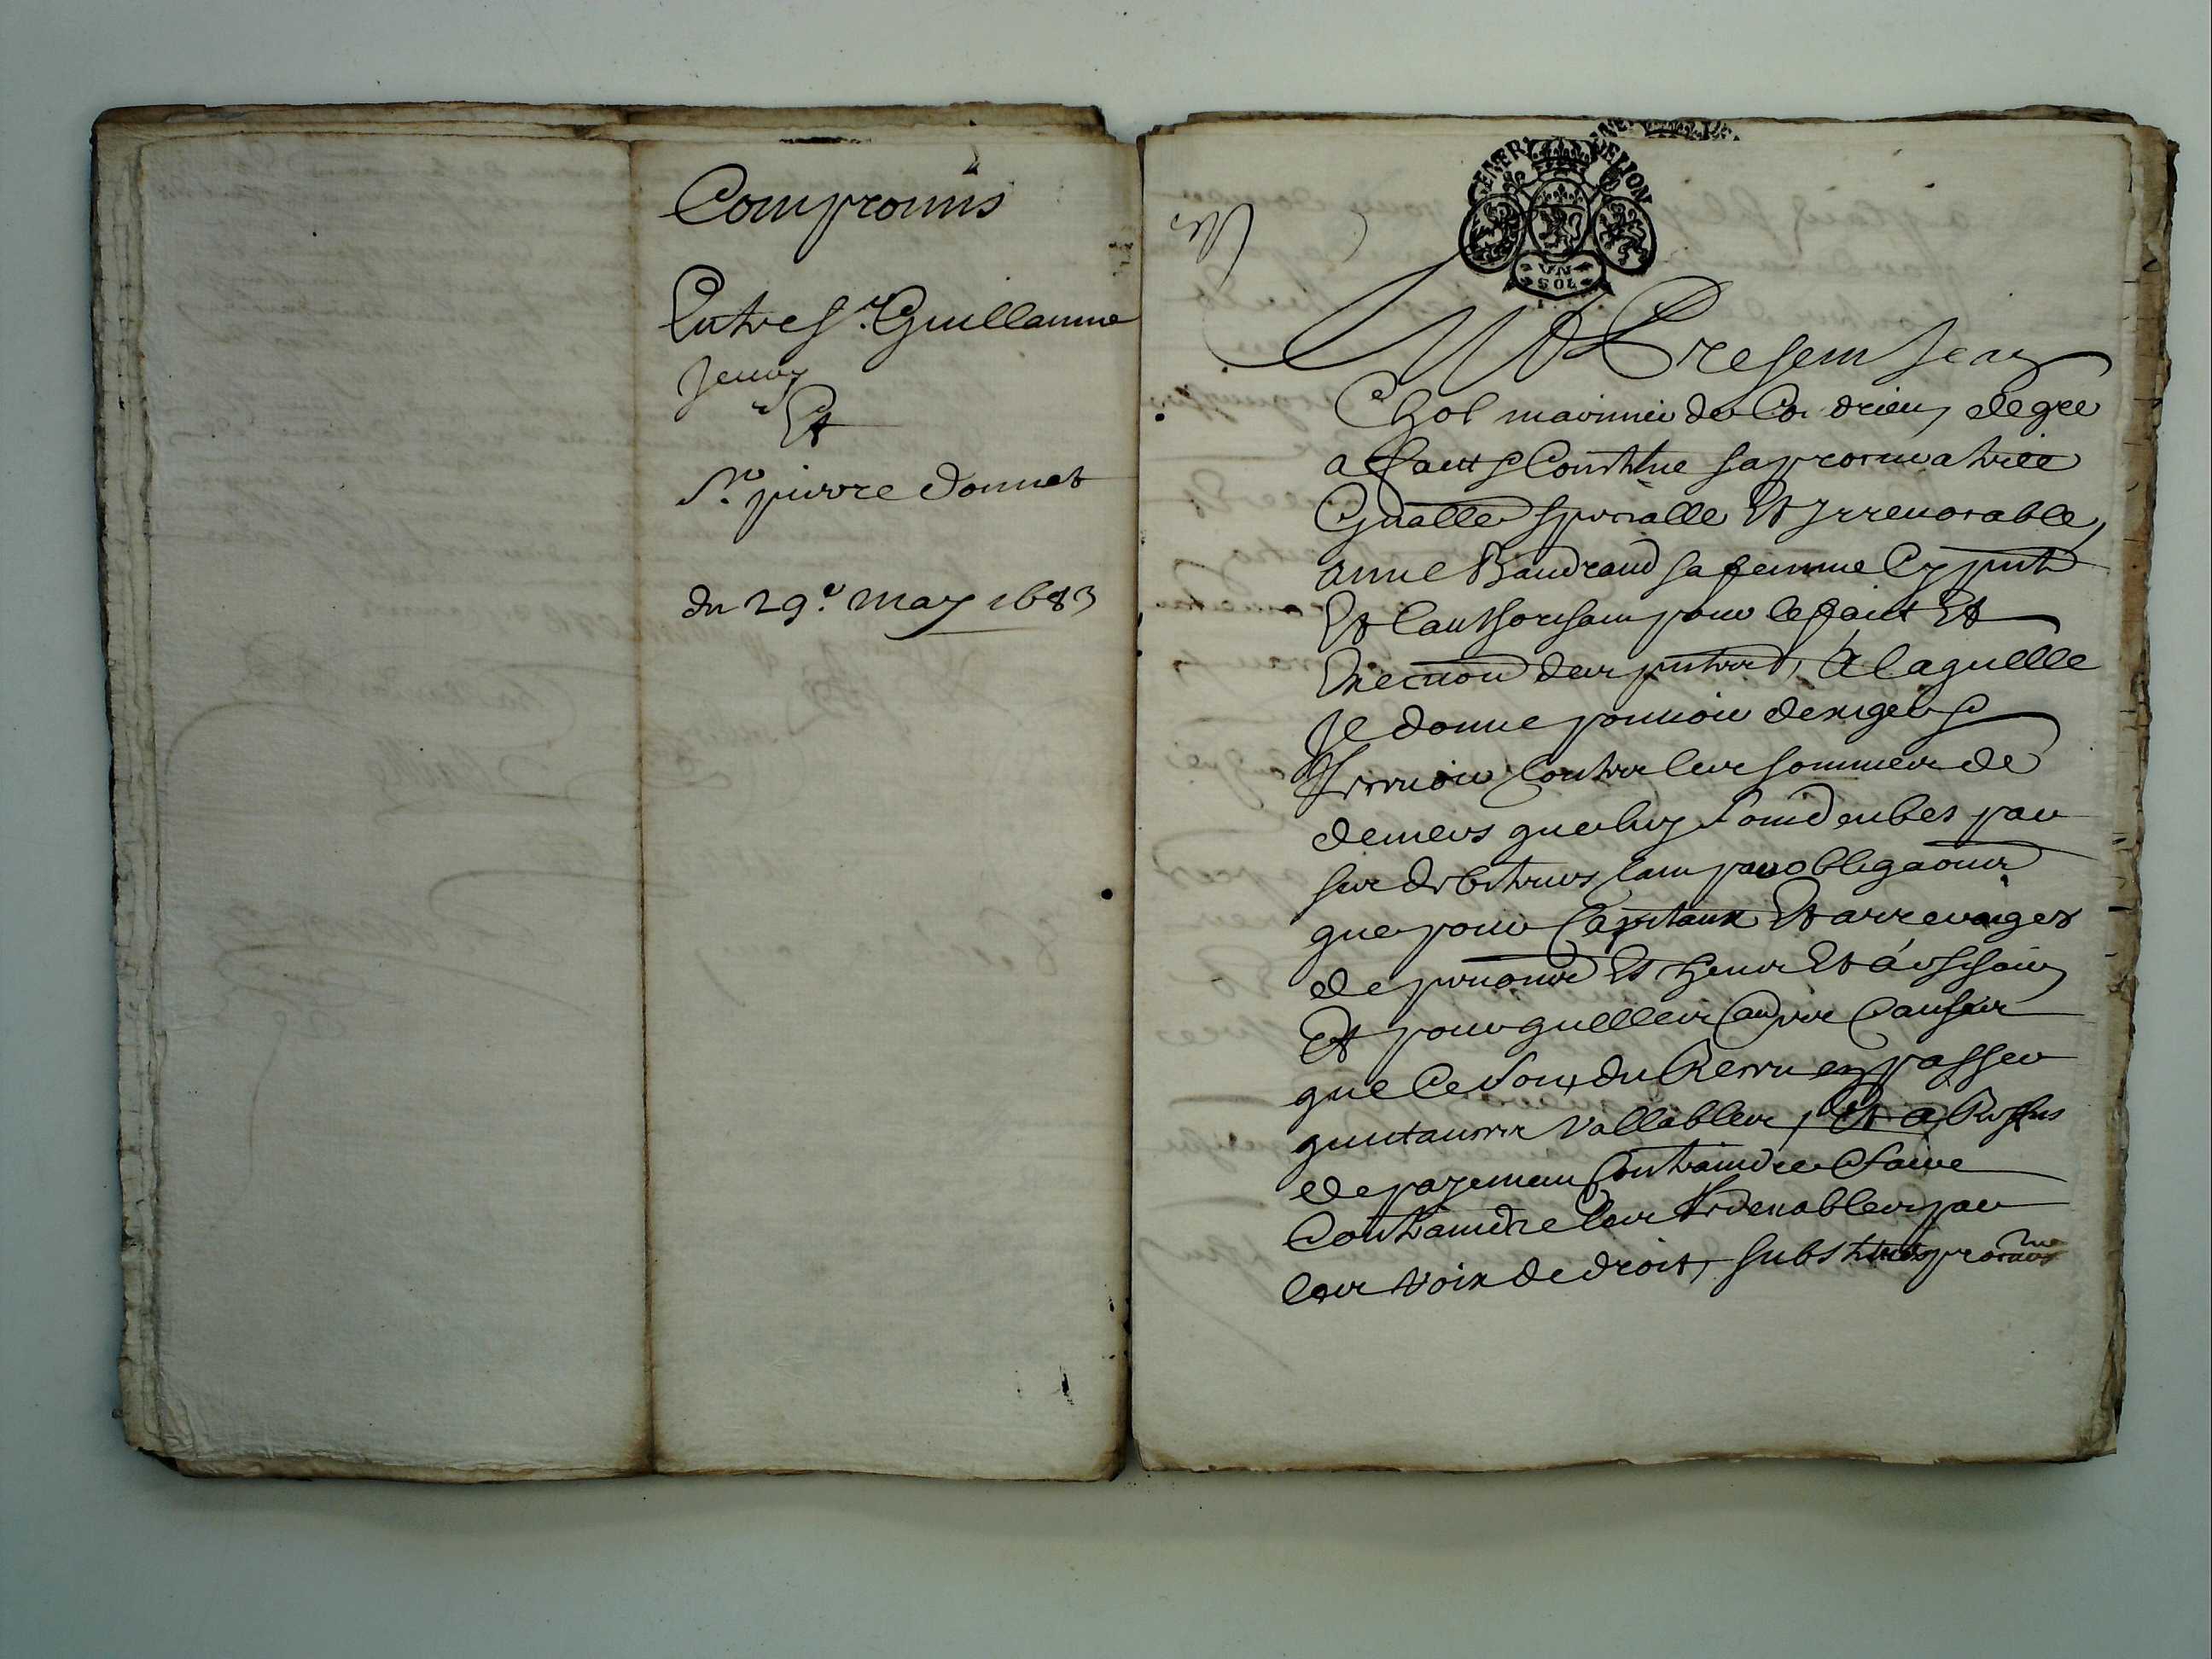 Compromis
Entre Sr. Guillaume
Jenoy
Et
Sr. pierre donnet
du 29e. may 1683
GENER DE LION
VN
SOL
Present Jean
Chol marinier de Condrieu, de gre
a faict & Constitue sa procuratrice
Gnalle specialle Et Irreuocable,
anne Baudrand sa femme Cy pnte
Et lauthorisant pour le faict Et
Execuon des pntes, A laquelle
Il donne pouuoir dexiger &
Receuoir touttes les sommes de
deniers que luy sont deubes par
ses debiteurs tant par obligaons
que pour Capitaux Et arreraiges
de pentions Et
Et pour quelles autres Causes
que ce soit, du Receu en passer
quictances Vallables, Et a Reffus
de payement Contraindre & faire
Contraindre les Redeuables par
les Voix de droit, substituer procurs